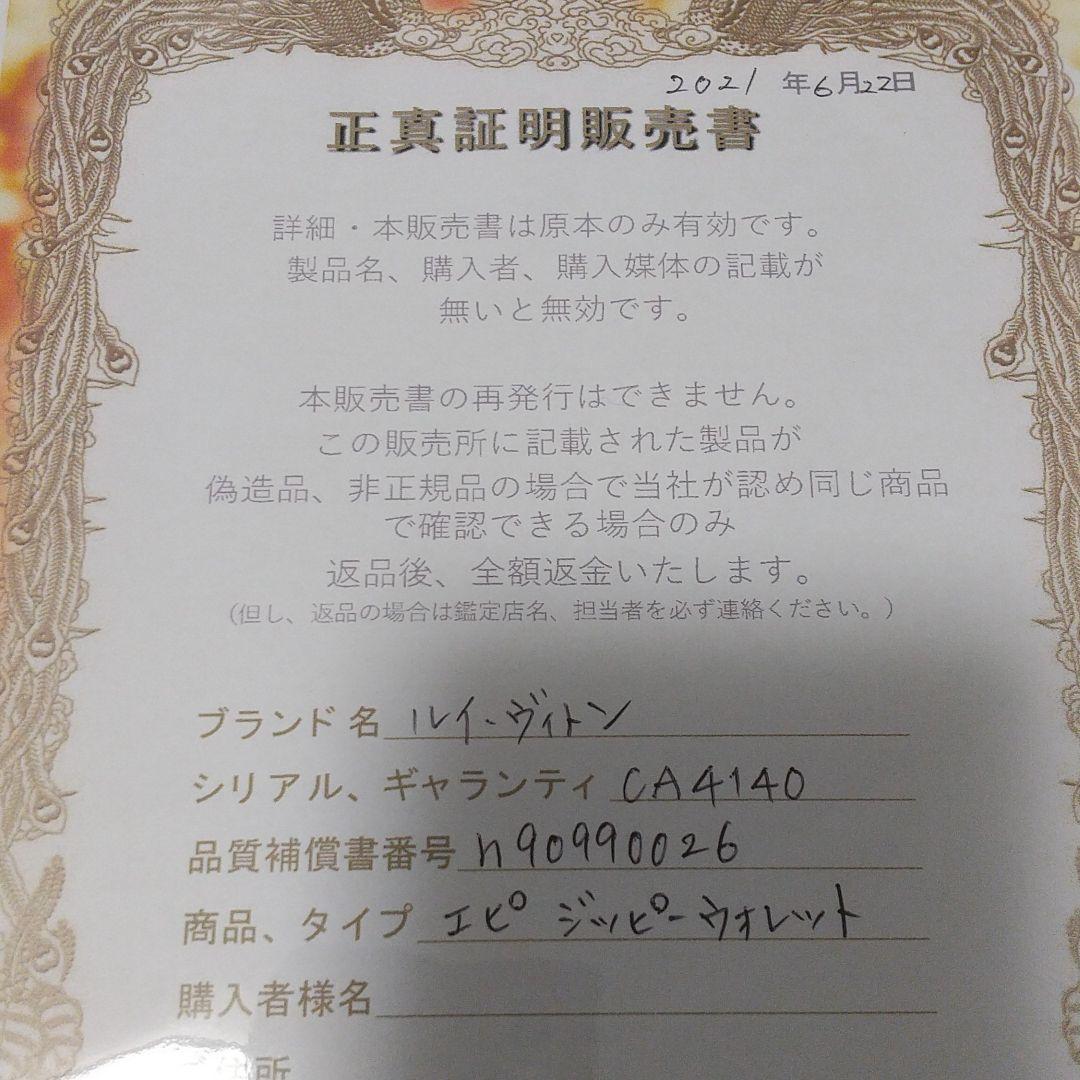 2021 年6月22日
正真証明販売書
詳細・本販売書は原本のみ有効です。
製品名、購入者、購入媒体の記載が
無いと無効です。
本販売書の再発行はできません。
この販売所に記載された製品が
偽造品、非正規品の場合で当社が認め同じ商品
で確認できる場合のみ
返品後、全額返金いたします。
（但し、返品の場合は鑑定店名、担当者を必ず連絡ください。）
ブランド名 ルイ・ヴィトン
シリアル、ギャランティ CA4140
品質補償書番号 n90990026
商品、タイプ エピ ジッピーウォレット
購入者様名
ご住所